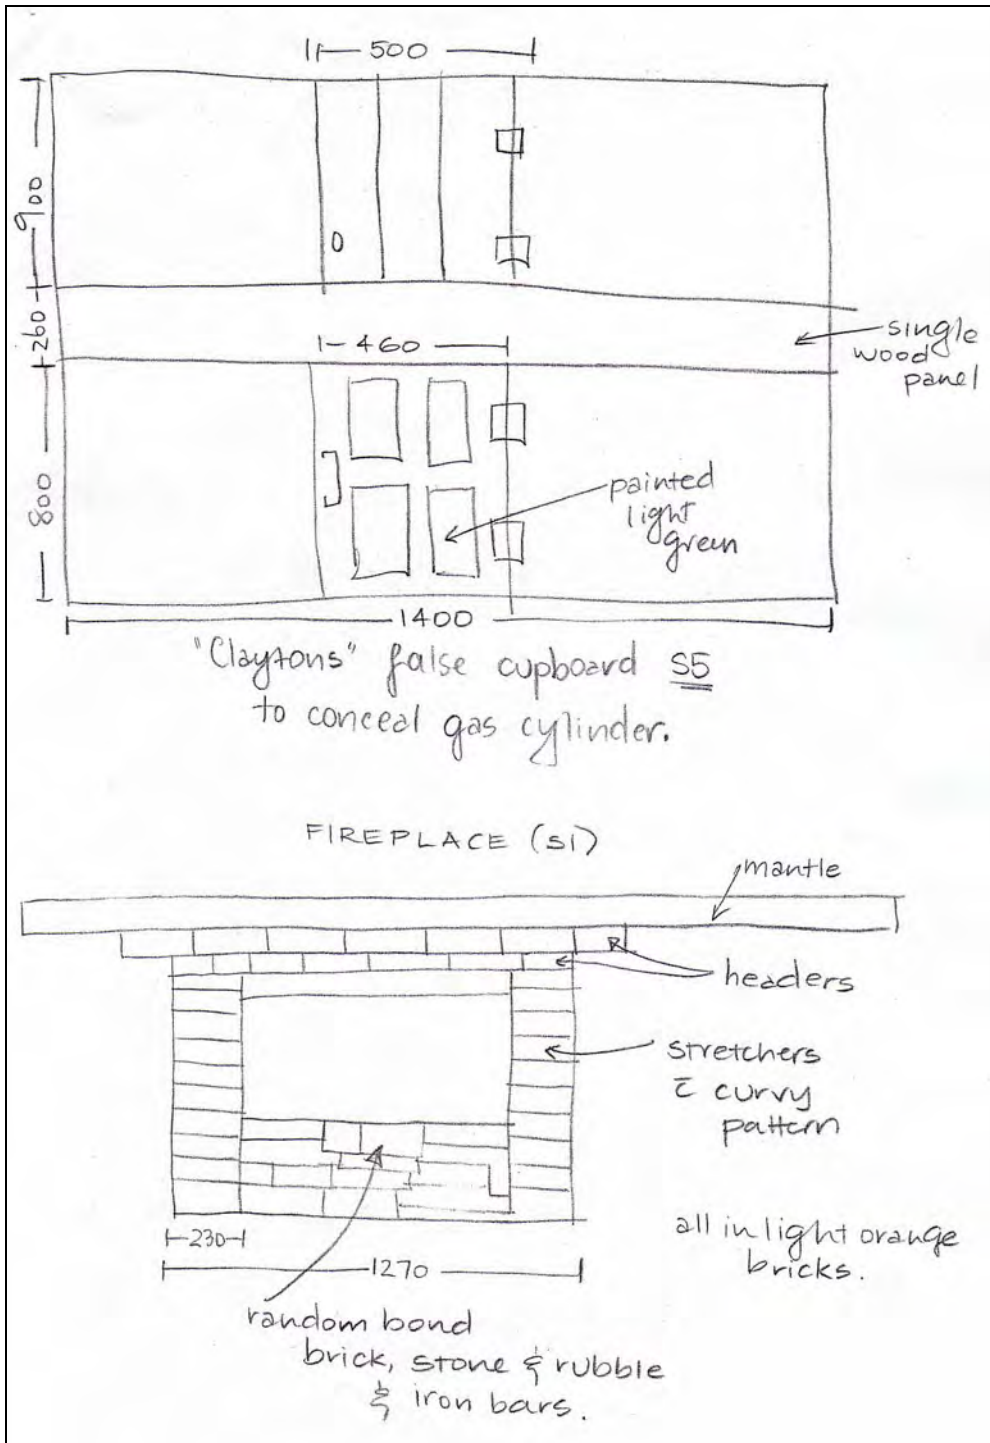 500
900
260
single
wood
panel
460
800
painted
light
green
1400
"Claytons" false cupboard S5
to conceal gas cylinder.
FIREPLACE (S1)
mantle
R
headers
stretchers
c̄ curvy
pattern
230
1270
all in light orange
bricks.
random bond
brick, stone & rubble
& iron bars.